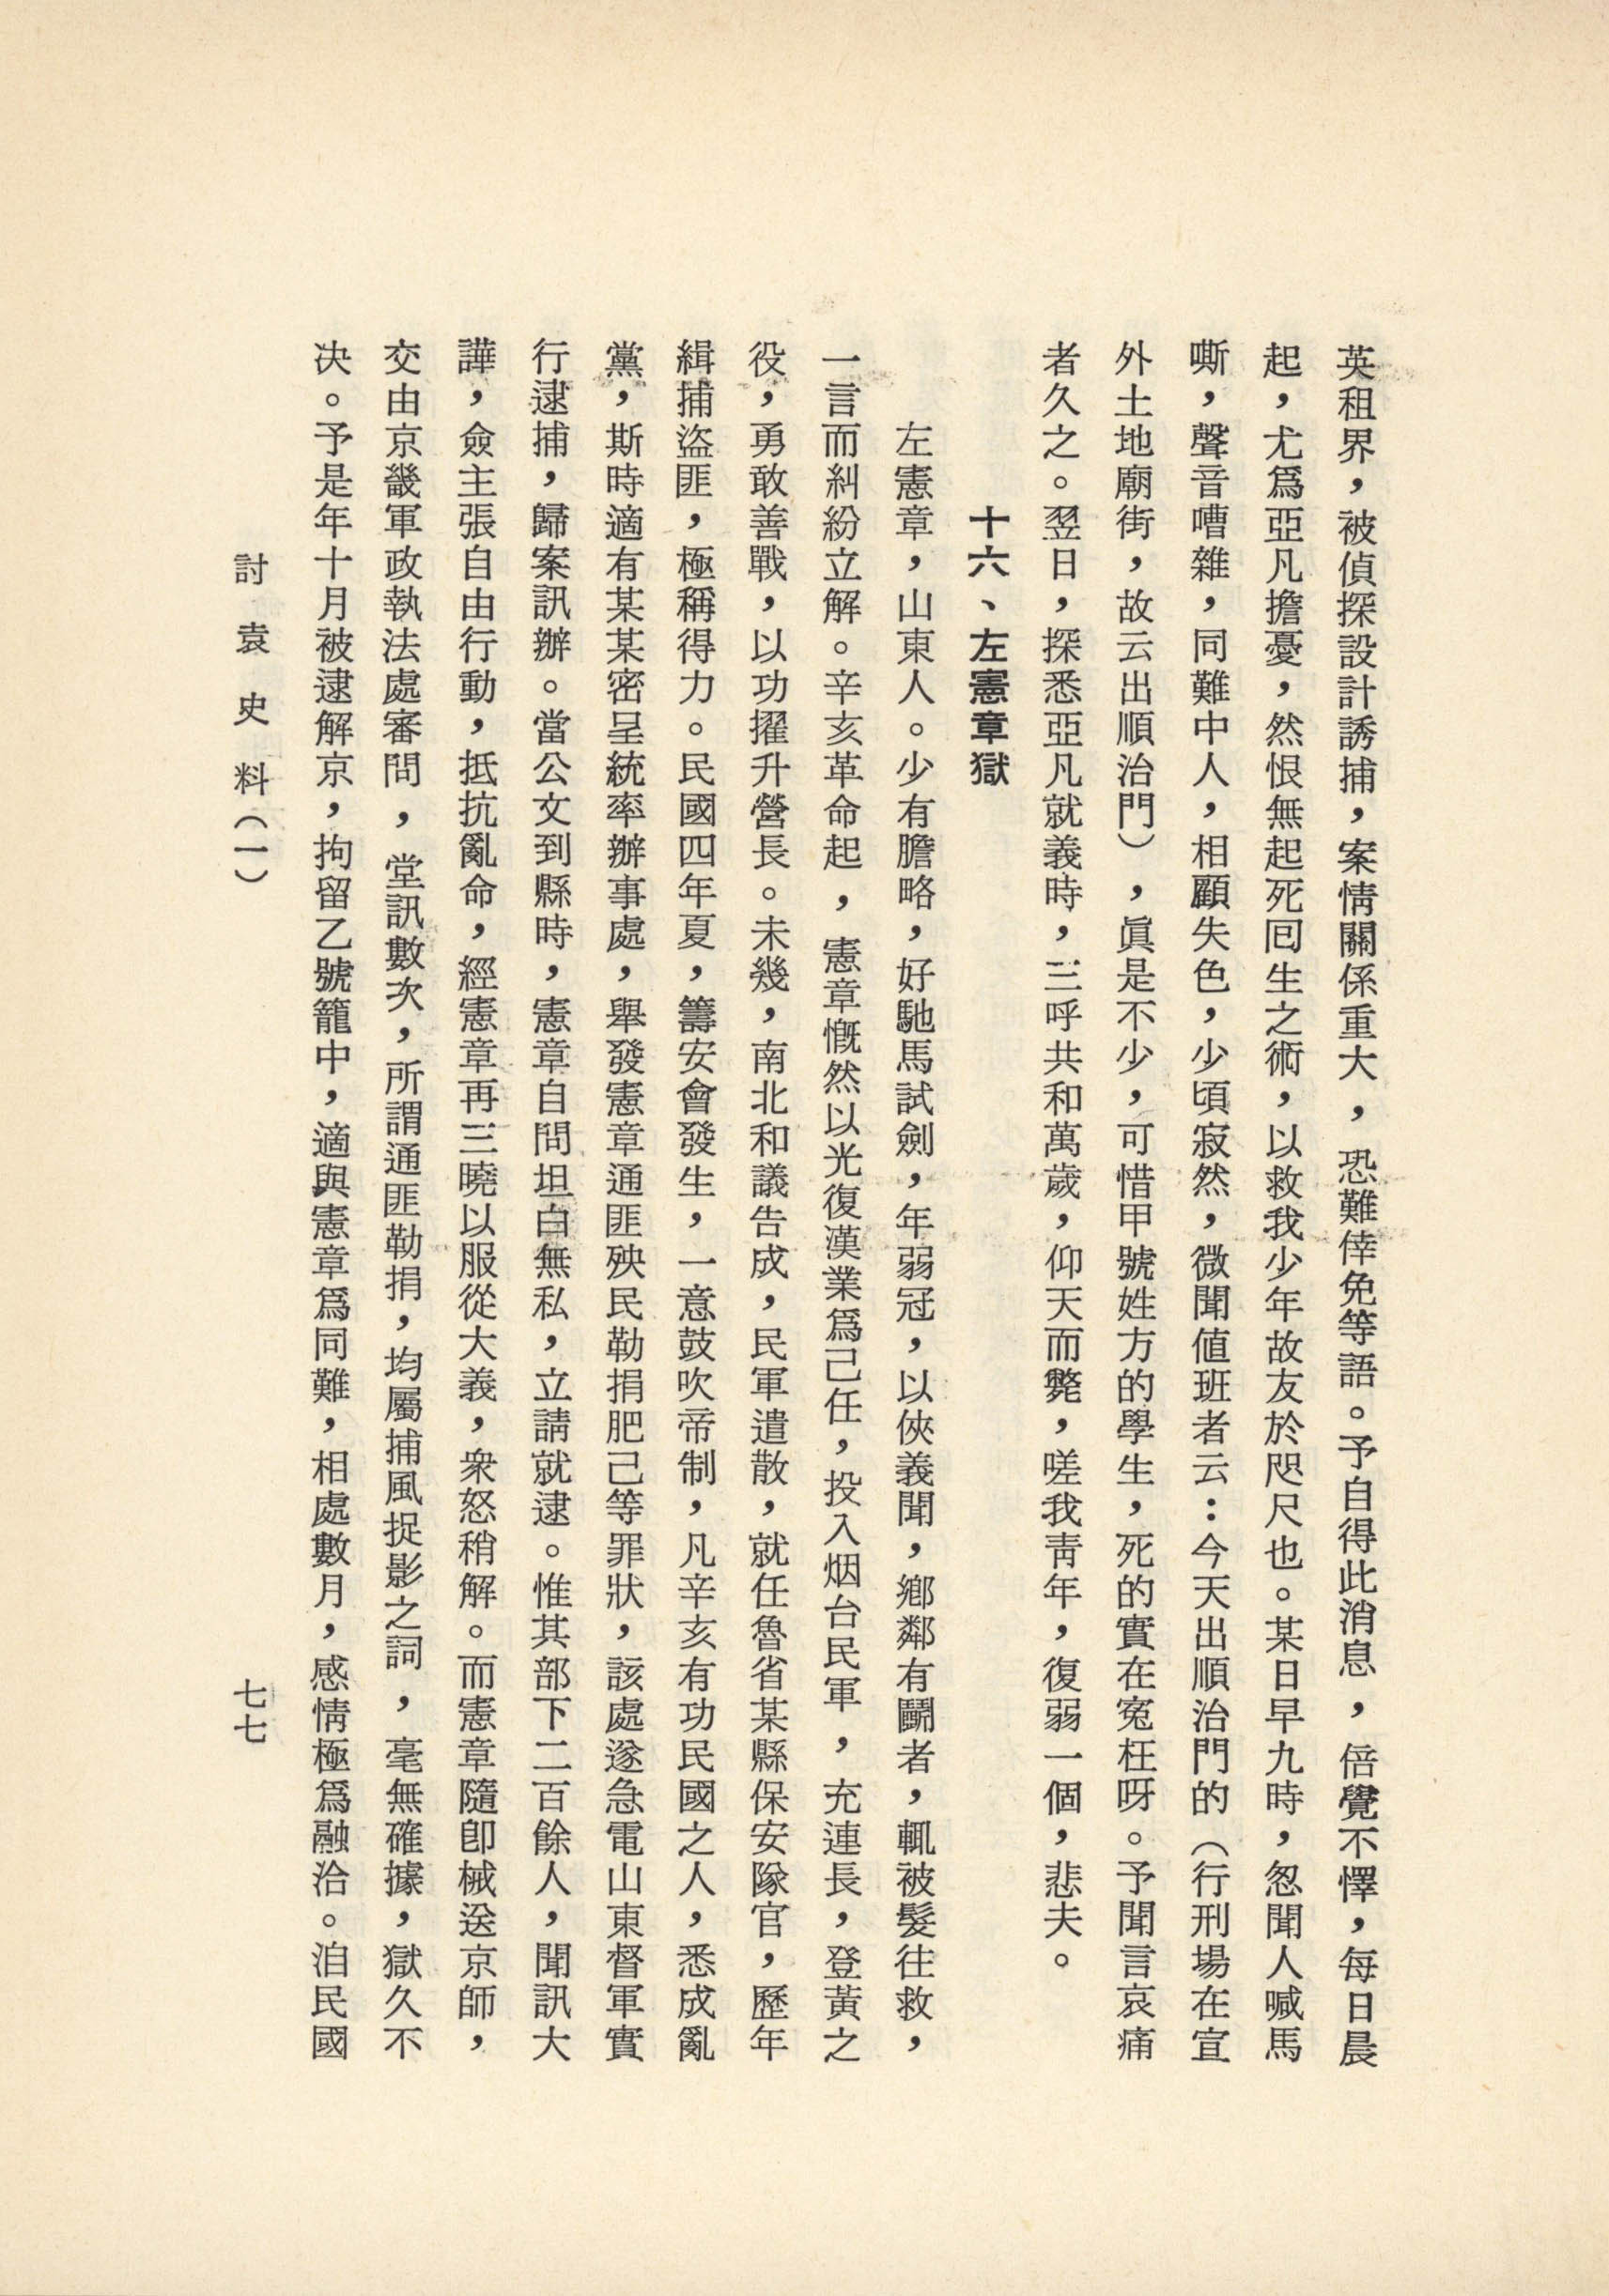 英租界，被偵探設計誘捕，案情關係重大，恐難倖免等語。予自得此消息，倍覺不懌，每日晨
起，尤爲亞凡擔憂，然恨無起死回生之術，以救我少年故友於咫尺也。某日早九時，忽聞人喊馬
嘶，聲音嘈雜，同難中人，相顧失色，少頃寂然，微聞値班者云：今天出順治門的（行刑場在宣
外土地廟街，故云出順治門），眞是不少，可惜甲號姓方的學生，死的實在寃枉呀。予聞言哀痛
者久之。翌日，探悉亞凡就義時，三呼共和萬歲，仰天而斃，嗟我靑年，復弱一個，悲夫。
十六、左憲章獄
左憲章，山東人。少有膽略，好馳馬試劍，年弱冠，以俠義聞，鄉鄰有鬭者，輒被髮往救，
一言而糾紛立解。辛亥革命起，憲章慨然以光復漢業爲己任，投入烟台民軍，充連長，登黃之
役，勇敢善戰，以功擢升營長。未幾，南北和議告成，民軍遣散，就任魯省某縣保安隊官，歷年
緝捕盜匪，極稱得力。民國四年夏，籌安會發生，一意鼓吹帝制，凡辛亥有功民國之人，悉成亂
黨，斯時適有某某密呈統率辦事處，舉發憲章通匪殃民勒捐肥己等罪狀，該處遂急電山東督軍實
行逮捕，歸案訊辦。當公文到縣時，憲章自問坦白無私，立請就逮。惟其部下二百餘人，聞訊大
譁，僉主張自由行動，抵抗亂命，經憲章再三曉以服從大義，衆怒稍解。而憲章隨卽械送京師，
交由京畿軍政執法處審問，堂訊數次，所謂通匪勒捐，均屬捕風捉影之詞，毫無確據，獄久不
決。予是年十月被逮解京，拘留乙號籠中，適與憲章爲同難，相處數月，感情極爲融洽。洎民國
討袁史料（一）
七七